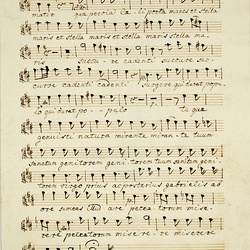 mater que pervia Coeli porta manes et stella
maris et stella maris et stella maris stella ma
ris succurre cadenti succurre suc
curre cadenti cadenti surgere qui curat popu
lo qui curat populo tu que
genuisti natura mirante mirante tuum
sanctum genitorem genitorem tuum sanctum geni
torem virgo prius ac posterius gabrielis ab
ore sumens illud ave peccatorum mise
rere peccatorum miserere miserere